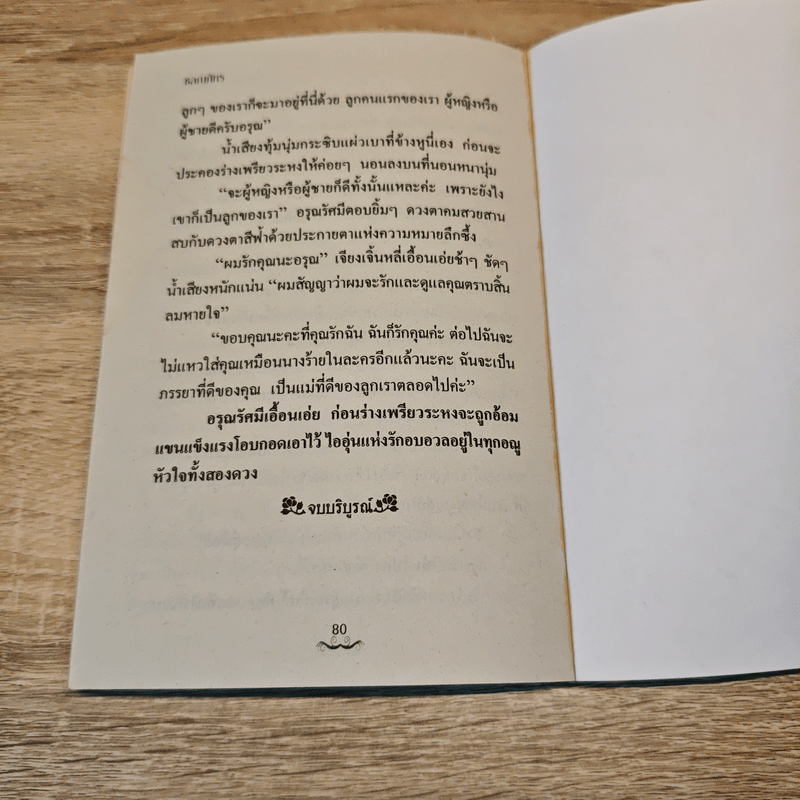 ลูกๆ ของเราก็จะมาอยู่ที่นี่ด้วย ลูกคนแรกของเรา ผู้หญิงหรือ
ผู้ชายดีครับอรุณ”
น้ำเสียงทุ้มนุ่มกระซิบแผ่วเบาที่ข้างหูนี่เอง ก่อนจะ
ประคองร่างเพรียวระหงให้ค่อยๆ นอนลงบนที่นอนหนานุ่ม
“จะผู้หญิงหรือผู้ชายก็ดีทั้งนั้นแหละค่ะ เพราะยังไง
เขาก็เป็นลูกของเรา” อรุณรัศมีตอบยิ้มๆ ดวงตาคมสวยสาน
สบกับดวงตาสีฟ้าด้วยประกายตาแห่งความหมายลึกซึ้ง
“ผมรักคุณนะอรุณ” เจียงเจิ้นหลี่เอื้อนเอ่ยช้าๆ ชัดๆ
น้ำเสียงหนักแน่น “ผมสัญญาว่าผมจะรักและดูแลคุณตราบสิ้น
ลมหายใจ”
“ขอบคุณนะคะที่คุณรักฉัน ฉันก็รักคุณค่ะ ต่อไปฉันจะ
ไม่แหวใส่คุณเหมือนนางร้ายในละครอีกแล้วนะคะ ฉันจะเป็น
ภรรยาที่ดีของคุณ เป็นแม่ที่ดีของลูกเราตลอดไปค่ะ”
อรุณรัศมีเอื้อนเอ่ย ก่อนร่างเพรียวระหงจะถูกอ้อม
แขนแข็งแรงโอบกอดเอาไว้ ไออุ่นแห่งรักอบอวลอยู่ในทุกอณู
หัวใจทั้งสองดวง
จบบริบูรณ์
80